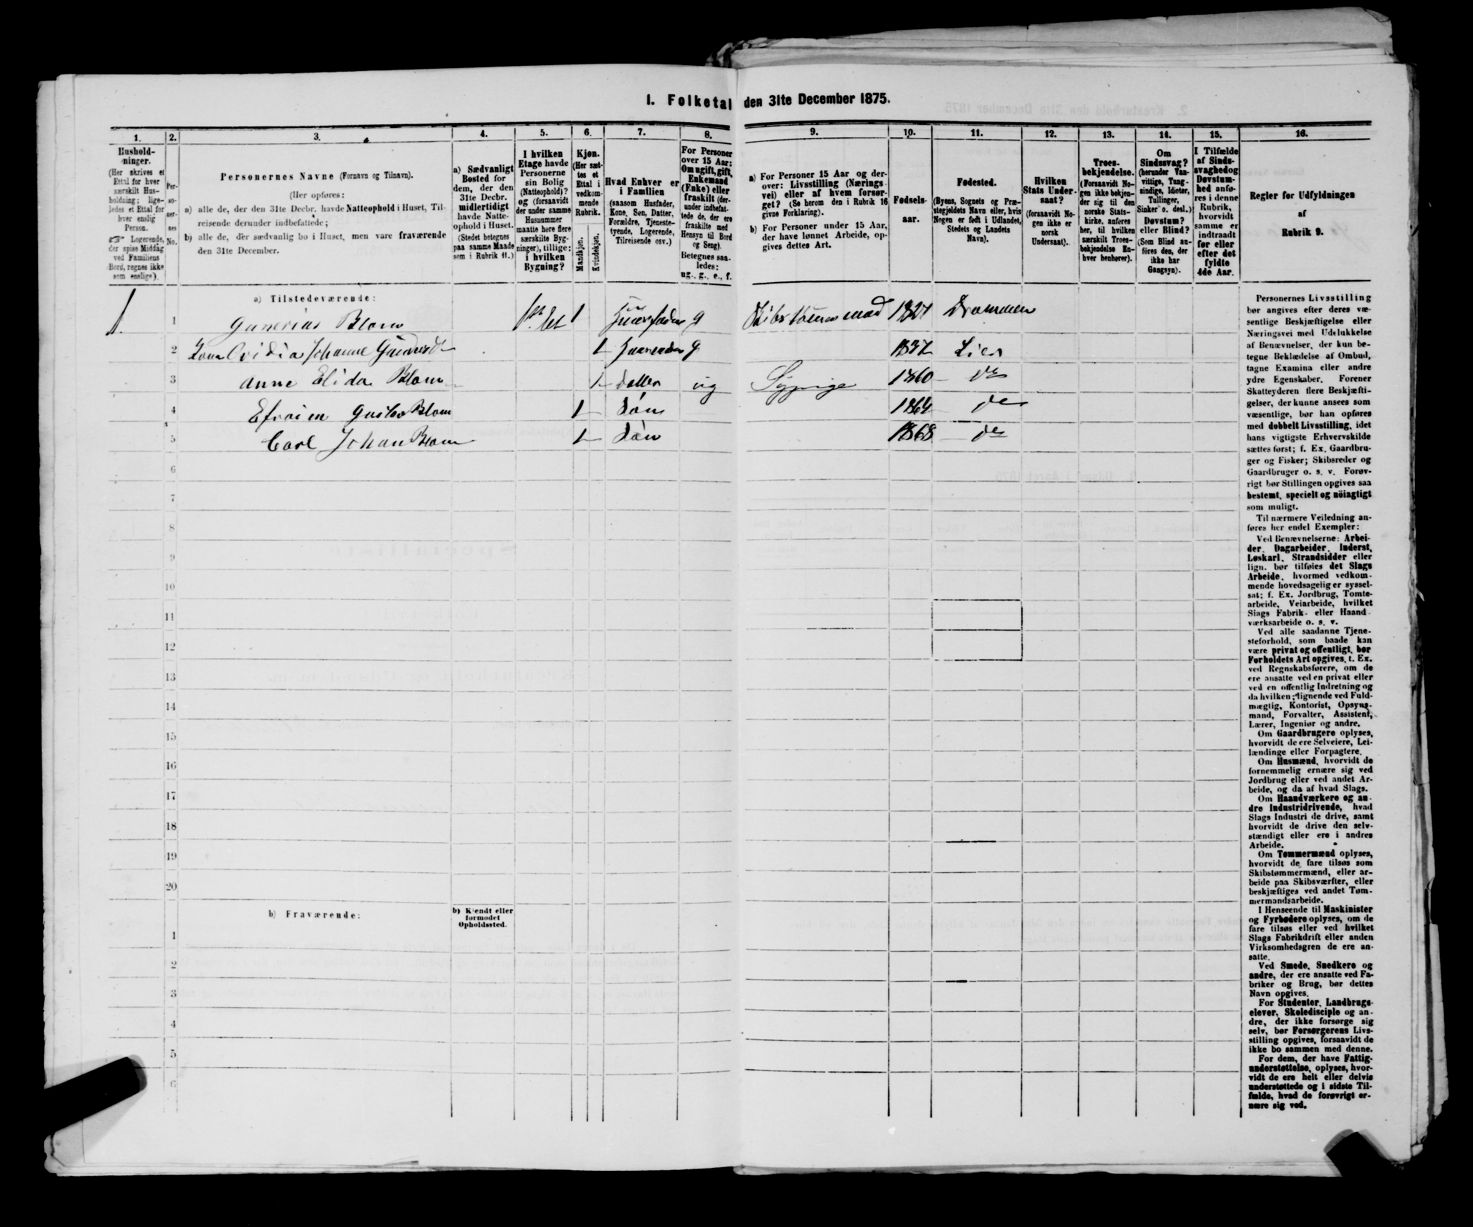 I. Folketal den 31te December 1875.
1. 2. 3. 4. 5. 6. 7. 8. 9. 10. 11. 12. 13. 14. 15. 16.
Hushold-
ninger.
(Her skrives et
Ettal for hver
særskilt Hus-
holdning; lige-
ledes et Ettal for
hver enslig
Person.
☞ Logerende,
der spise Middag
ved Familiens
Bord, regnes ikke
som enslige).
Per-
so-
ner-
nes
No.
Personernes Navne (Fornavn og Tilnavn).
(Her opføres:
a) alle de, der den 31te Decbr. havde Natteophold i Huset, Til-
reisende derunder indbefattede;
b) alle de, der sædvanlig bo i Huset, men vare fraværende
den 31te December.
a) Sædvanligt
Bosted for
dem, der den
31te Decbr.
midlertidigt
havde Natte-
ophold i Huset.
(Stedet betegnes
paa samme Maade
som i Rubrik 11.)
I hvilken
Etage havde
Personerne
sin Bolig
(Natteophold)?
og (forsaavidt
der under samme
Husnummer
maatte høre flere
særskilte Byg-
ninger), tillige:
i hvilken
Bygning?
Kjøn.
(Her sæt-
tes et
Ettal i
vedkom-
mende
Rubrik.
Mandkjøn.
Kvindekjøn.
Hvad Enhver er
i Familien
(saasom Husfader,
Kone, Søn, Datter,
Forældre, Tjeneste-
tyende, Logerende,
Tilreisende osv.)
For Personer
over 15 Aar:
Om ugift, gift,
Enkemand
(Enke) eller
fraskilt (der-
under indbefat-
tede de, der ere
fraskilte med
Hensyn til Bord
og Seng).
Betegnes saa-
ledes:
ug., g., e., f.
a) For Personer 15 Aar og der-
over: Livsstilling (Nærings
vei) eller af hvem forsør-
get? (Se herom den i Rubrik 16
givne Forklaring).
b) For Personer under 15 Aar,
der have lønnet Arbeide, op-
gives dettes Art.
Fødsels-
aar.
Fødested.
(Byens, Sognets og Præ-
stegjeldets Navn eller, hvis
Nogen er født i Udlandet,
Stedets og Landets
Navn).
Hvilken
Stats Under-
saat?
(forsaavidt No-
gen ikke er
norsk
Undersaat).
Troes-
bekjendelse.
(Forsaavidt No-
gen ikke bekjen-
der sig til den
norske Stats-
kirke, anføres
her, til hvilken
særskilt Troes-
bekjendelse En-
hver benhører).
Om
Sindssvag?
(herunder Vaa-
vittige, Tung-
sindige, Idioter,
Tullinger,
Sinker o. desl.,)
Døvstum?
eller Blind?
(Som Blind an-
føres den, der
ikke har
Gangsyn).
I Tilfælde
af Sinds-
svaghed og
Døvstum-
hed anfø-
res i denne
Rubrik,
hvorvidt
samme er
indtraadt
før eller
efter det
fyldte
4de Aar.
Regler for Udfyldningen
af
Rubrik 9.
a) Tilstedeværende:
1 1 Gunerius Blom 1ste Et 1 Huusfader g 1824 Drammen
2 Kone Ovidia Johanne 1 g 1837 Lier
3 Anne Elida Blom 1 datter ug Sypige 1860 do
4 Efraim Gustav Blom 1 søn 1864 do
5 Carl Johan Blom 1 søn 1868 do
6
7
8
9
10
11
12
13
14
15
16
17
18
19
20
b) Fraværende:
b) Kjendt eller
formodet
Opholdssted.
1
2
3
4
5
6
Personernes Livsstilling
bør angives efter deres væ-
sentlige Beskjæftigelse eller
Næringsvei med Udelukkelse
af Benævnelser, der kun be-
tegne Beklædelse af Ombud,
tagne Examina eller andre
ydre Egenskaber. Forener
Skatteyderen flere Beskjæfti-
gelser, der kunne ansees som
væsentlige, bør han opføres
med dobbelt Livsstilling, idet
hans vigtigste Erhvervskilde
sættes først; f. Ex. Gaardbru-
ger og Fisker; Skibsreder og
Gaardbruger o. s. v. Forøv-
rigt bør Stillingen opgives saa
bestemt, specielt og nøiagtigt
som muligt.
Til nærmere Veiledning an-
føres her endel Exempler:
Ved Benævnelserne: Arbei-
der, Dagarbeider, Inderst,
Løskarl, Strandsidder eller
lign. bør tilføies det Slags
Arbeide, hvormed vedkom-
mende hovedsagelig er syssel-
sat; f. Ex. Jordbrug, Tomte-
arbeide, Veiarbeide, hvilket
Slags Fabrik- eller Haand-
værksarbeide o. s. v.
Ved alle saadanne Tjene-
steforhold, som baade kan
være privat og offentligt, bør
Forholdets Art opgives, t. Ex.
ved Regnskabsførere, om de
ere ansatte ved en privat eller
ved en offentlig Indretning og
da hvilken; lignende ved Fuld-
mægtig, Kontorist, Opsyns-
mand, Forvalter, Assistent,
Lærer, Ingeniør og andre.
Om Gaardbrugere oplyses,
hvorvidt de ere Selveiere, Lei-
lændinge eller Forpagtere.
Om Husmænd, hvorvidt de
fornemmelig ernære sig ved
Jordbrug eller ved andet Ar-
beide, og da af hvad Slags.
Om Haandværkere og an-
dre Industridrivende, hvad
Slags Industri de drive, samt
hvorvidt de drive den selv-
stændigt eller ere i andres
Arbeide.
Om Tømmermænd oplyses,
hvorvidt de fare tilsøs som
Skibstømmermænd, eller ar-
beide paa Skibsværfter, eller
beskjæftiges ved andet Tøm-
mermandsarbeide.
I Henseende til Maskinister
og Fyrbødere oplyses, om de
fare tilsøs eller ved hvilket
Slags Fabrikdrift eller anden
Virksomhedsgren de ere an-
satte.
Ved Smede, Snedkere og
andre, der ere ansatte ved Fa-
briker og Brug, bør dettes
Navn opgives.
For Studenter, Landbrugs-
elever, Skoledisciple og an-
dre, der ikke forsørge sig
selv, bør Forsørgerens Livs-
stilling opgives, forsaavidt de
ikke bo sammen med denne.
For dem, der have Fattig-
understøttelse, oplyses, hvor-
vidt de ere helt eller delvis
understøttede og i sidste Til-
fælde, hvad de forøvrigt er-
nære sig ved.